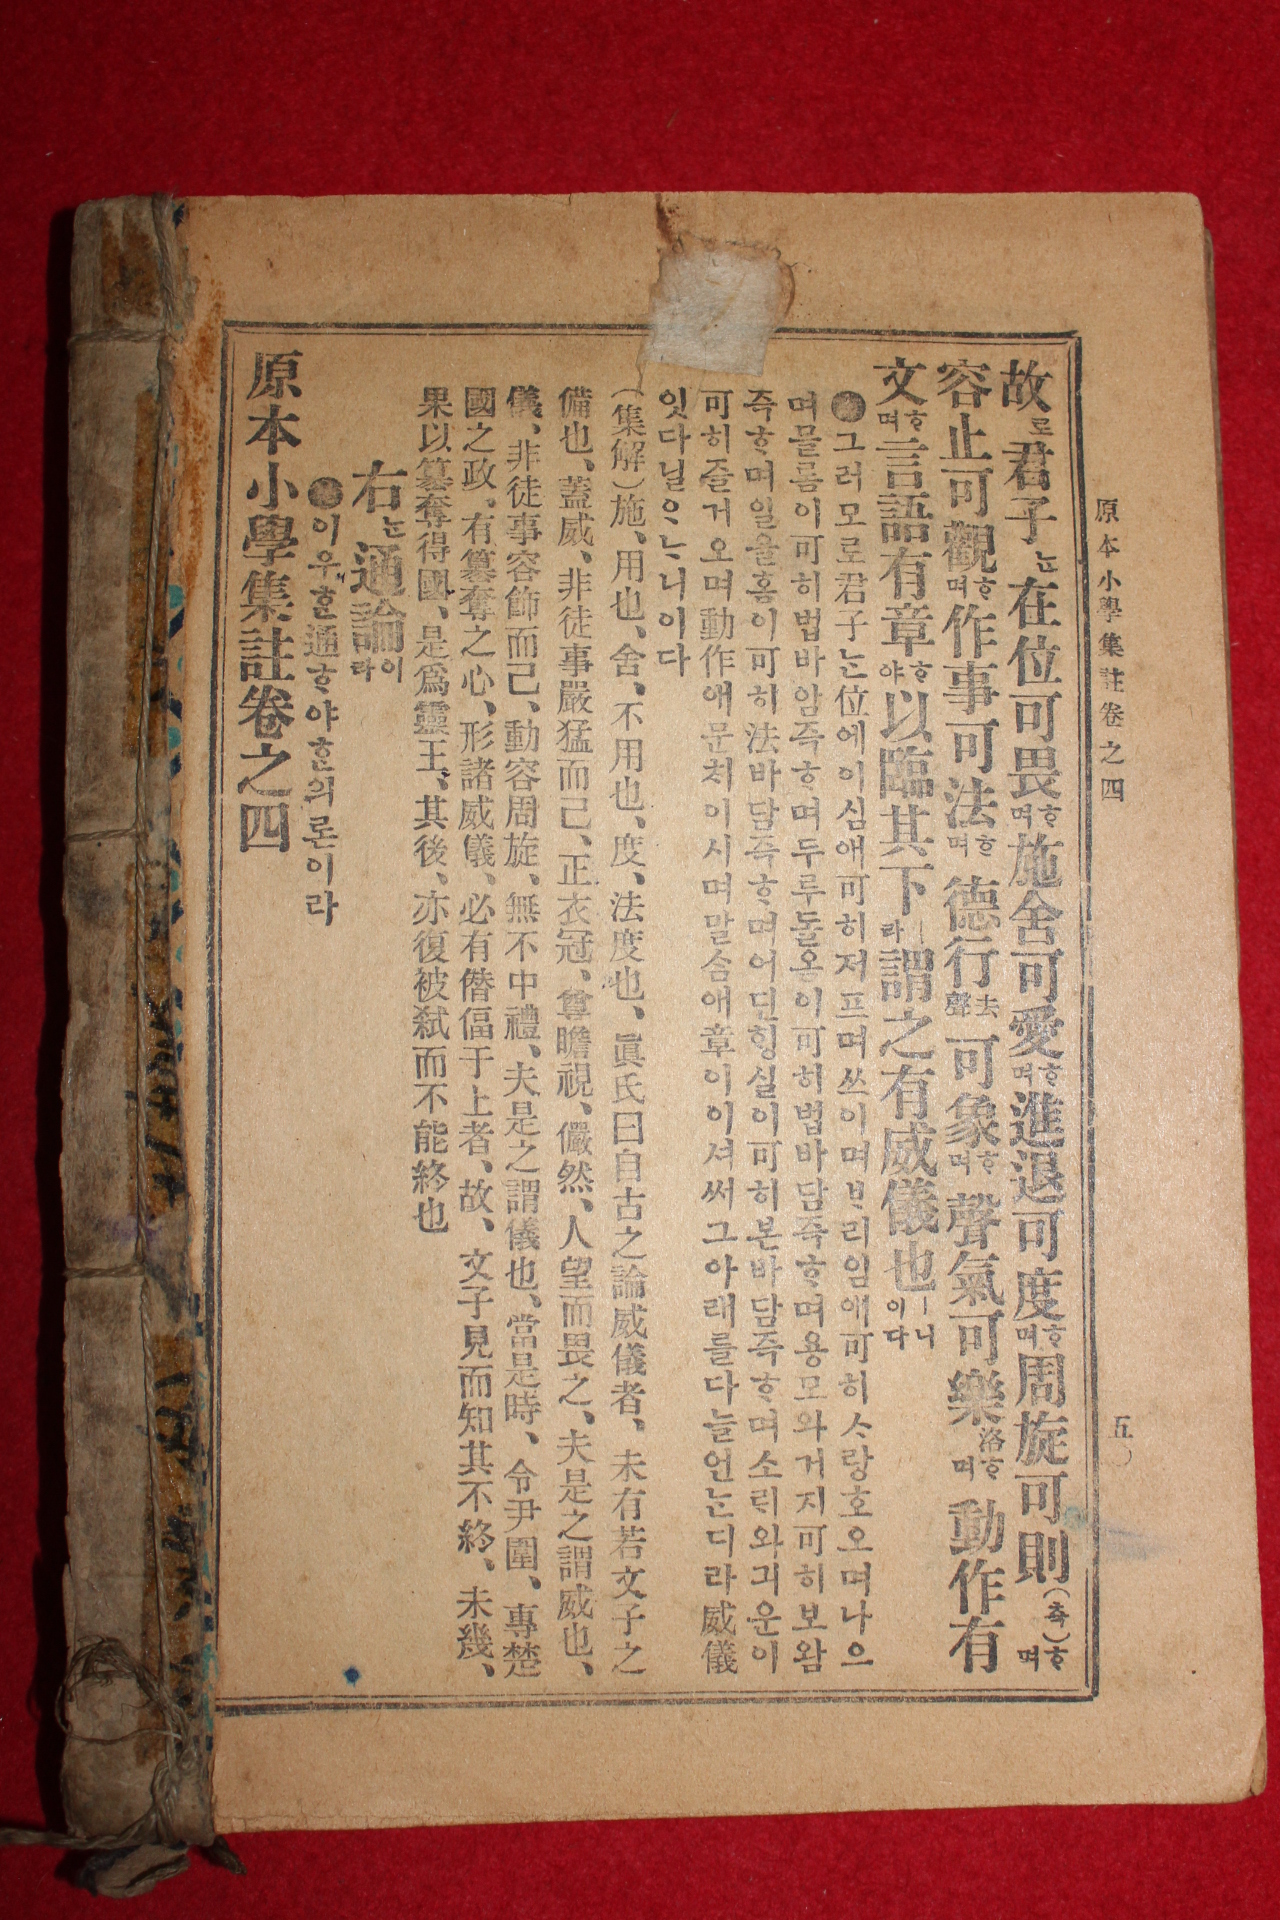 原本小學集註卷之四 五〇
故로君子ᄂᆞᆫ在位可畏ᄒᆞ며施舍可愛ᄒᆞ며進退可度ᄒᆞ며周旋可則(측)ᄒᆞ며
容止可觀ᄒᆞ며作事可法ᄒᆞ며德行去聲可象ᄒᆞ며聲氣可樂洛ᄒᆞ며動作有
文ᄒᆞ며言語有章ᄒᆞ야以臨其下ㅣ라謂之有威儀也ㅣ니이다
그러모로君子ᄂᆞᆫ位에이심애可히저프며쓰이며ᄇᆞ리임애可히ᄉᆞ랑호오며나으
며믈룸이可히법바암즉ᄒᆞ며두루돌옴이可히법바담즉ᄒᆞ며용모와거지可히보왐
즉ᄒᆞ며일을홈이可히法바담즉ᄒᆞ며어딘ᄒᆡᆼ실이可히본바담즉ᄒᆞ며소ᄅᆡ와긔운이
可히즐거오며動作애문ᄎᆡ이시며말ᄉᆞᆷ애章이이셔써그아래를다늘언ᄂᆞᆫ디라威儀
잇다닐ᄋᆞᄂᆞ니이다
(集解)施、用也、舍、不用也、度、法度也、眞氏曰自古之論威儀者、未有若文子之
備也、蓋威、非徒事嚴猛而已、正衣冠、尊瞻視、儼然、人望而畏之、夫是之謂威也、
儀、非徒事容飾而已、動容周旋、無不中禮、夫是之謂儀也、當是時、令尹圍、專楚
國之政、有簒奪之心、形諸威儀、必有僭偪于上者、故、文子見而知其不終、未幾、
果以簒奪得國、是爲靈王、其後、亦復被弑而不能終也
右ᄂᆞᆫ通論이라
이우ᄒᆞᆫ通ᄒᆞ야ᄒᆞᆫ의론이라
原本小學集註卷之四